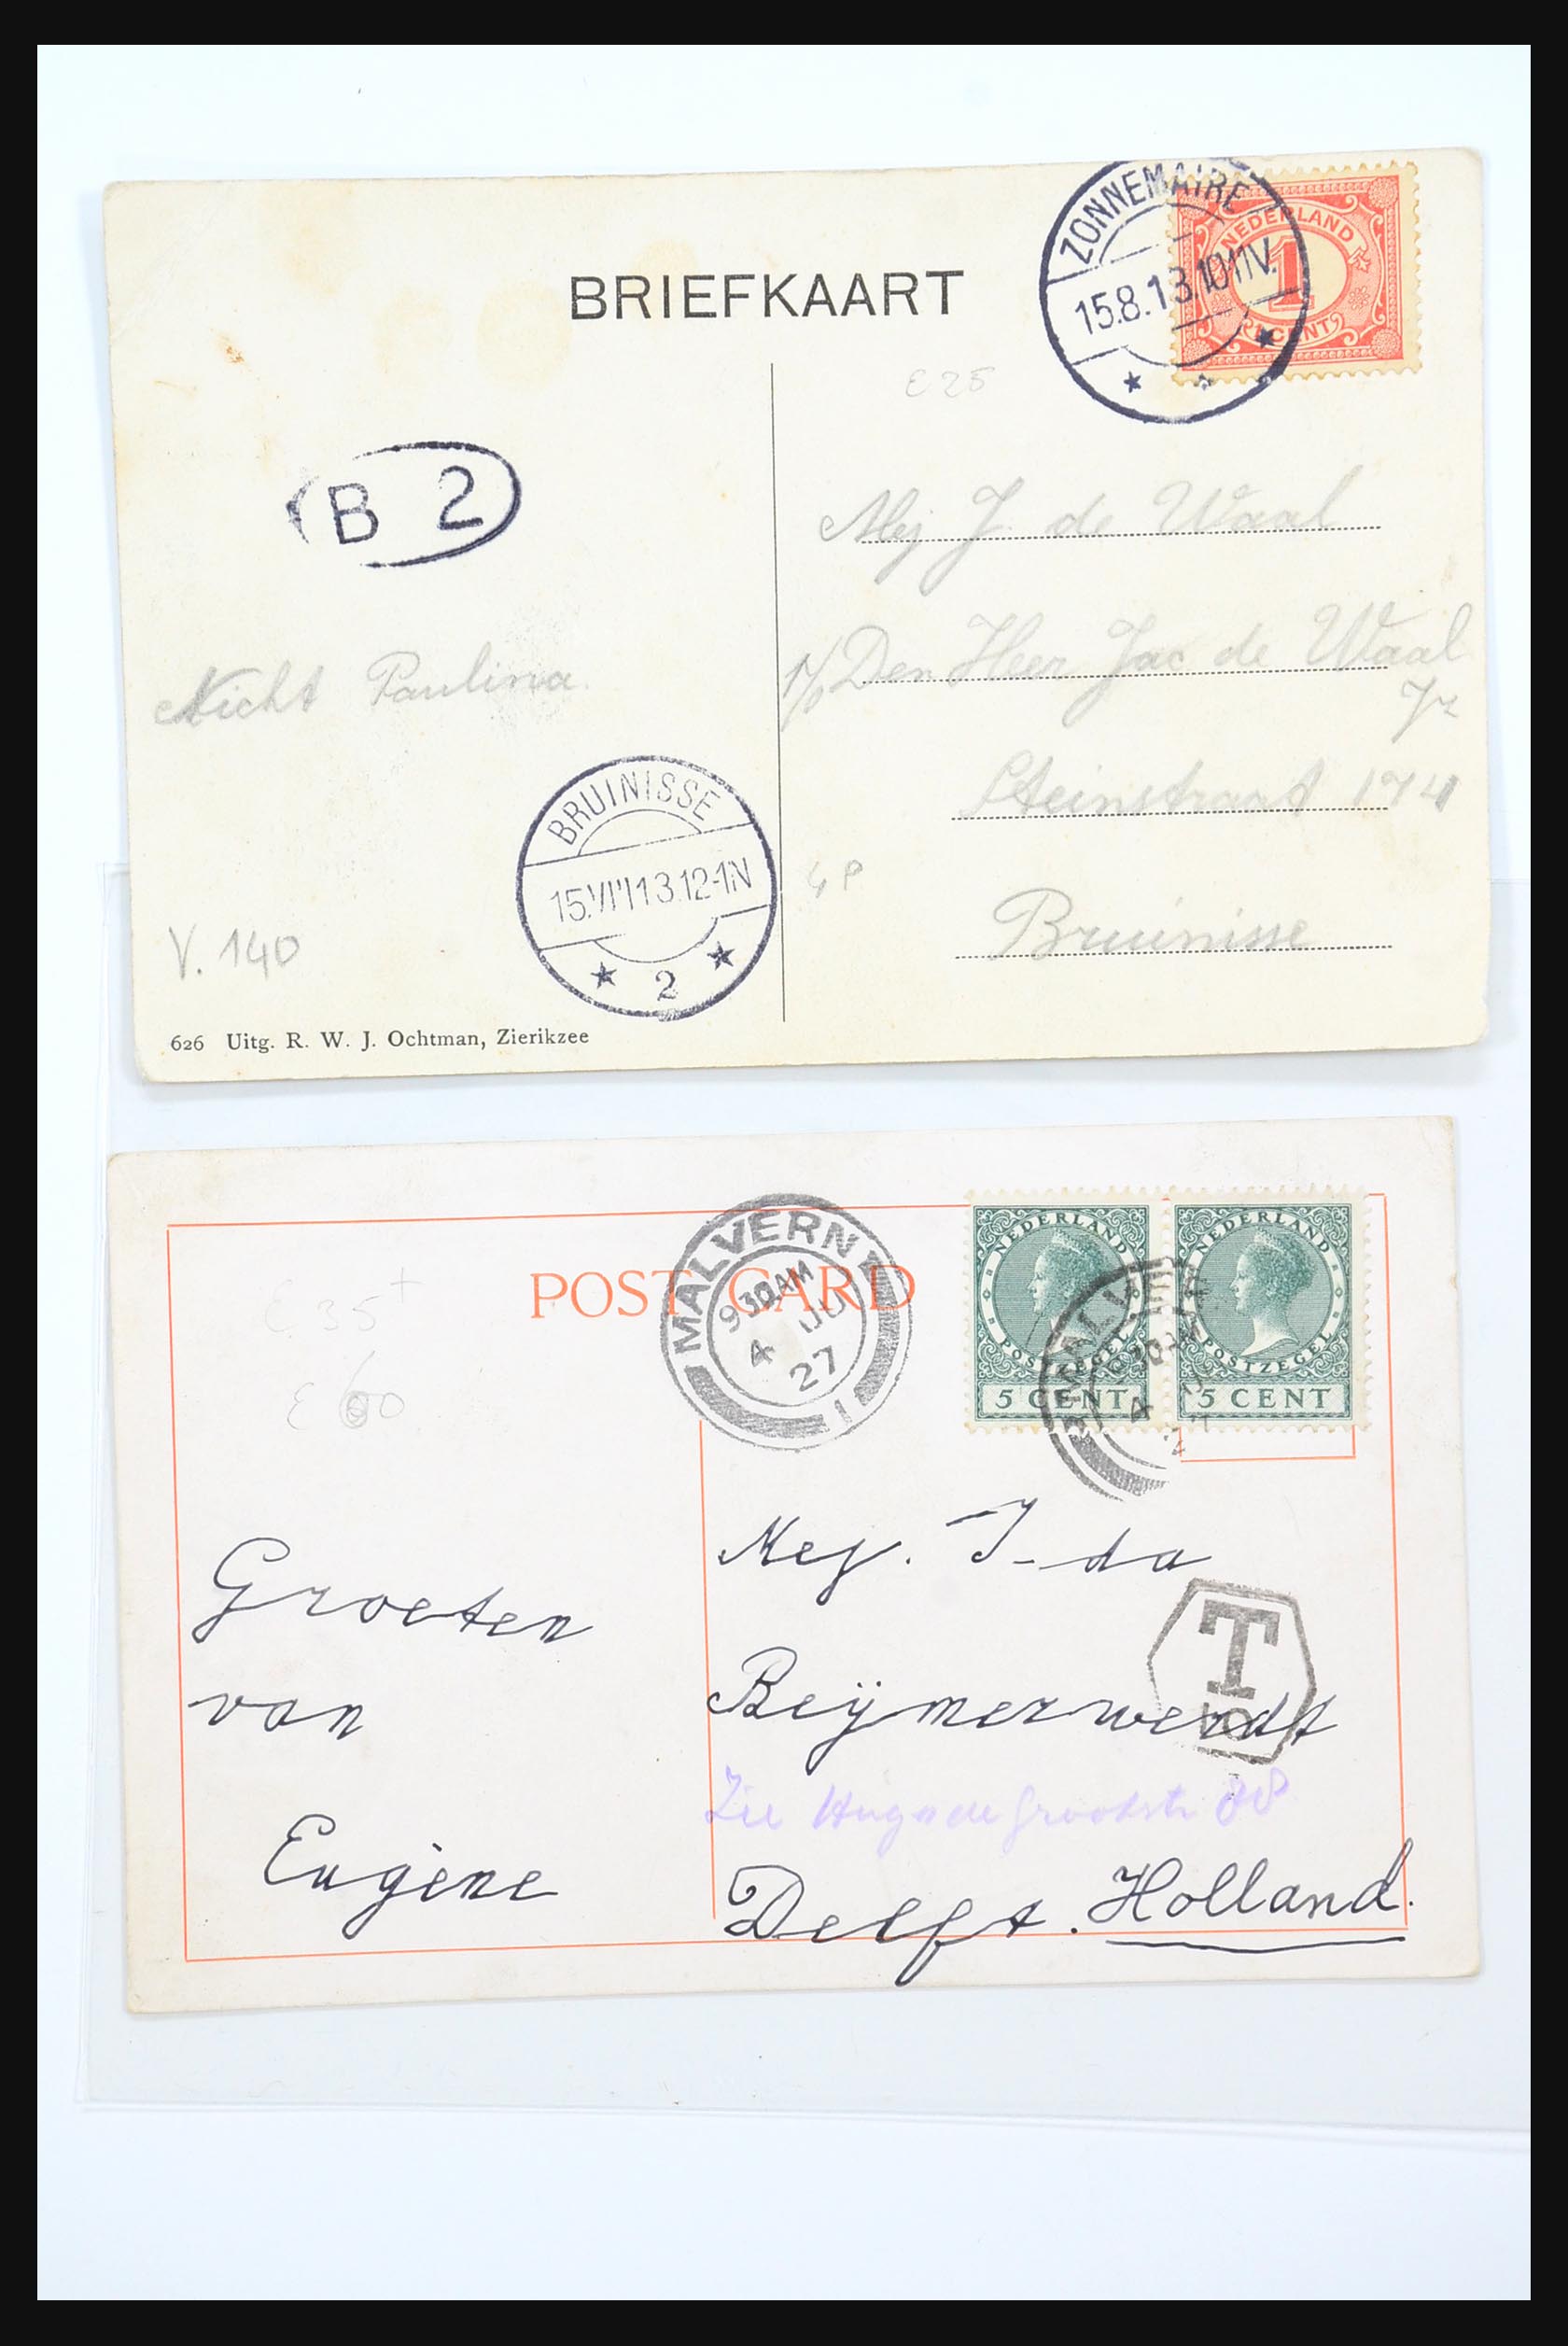 ZONNEMAIRE
15.8.13.10-11V.
NEDERLAND
1
CENT
BRIEFKAART
E 25
B 2
Mej J. de Waal
p/o Den Heer Jac de Waal
Jz
Nicht Paulina.
Steinstraat 174
BRUINISSE
15.VIII 13.12-1N
2
4 P
Bruinisse
V. 140
626 Uitg. R. W. J. Ochtman, Zierikzee
POST CARD
MALVERN
9 30 AM
4 JU
27
1
NEDERLAND
POSTZEGEL
5 CENT
NEDERLAND
POSTZEGEL
5 CENT
MALVERN
4
E 35+
E 60
Mej. I-da
Groeten
T
Beÿmerwerdt
van
Zie Hugo de Grootstr 88
Eugène
Delft. Holland.